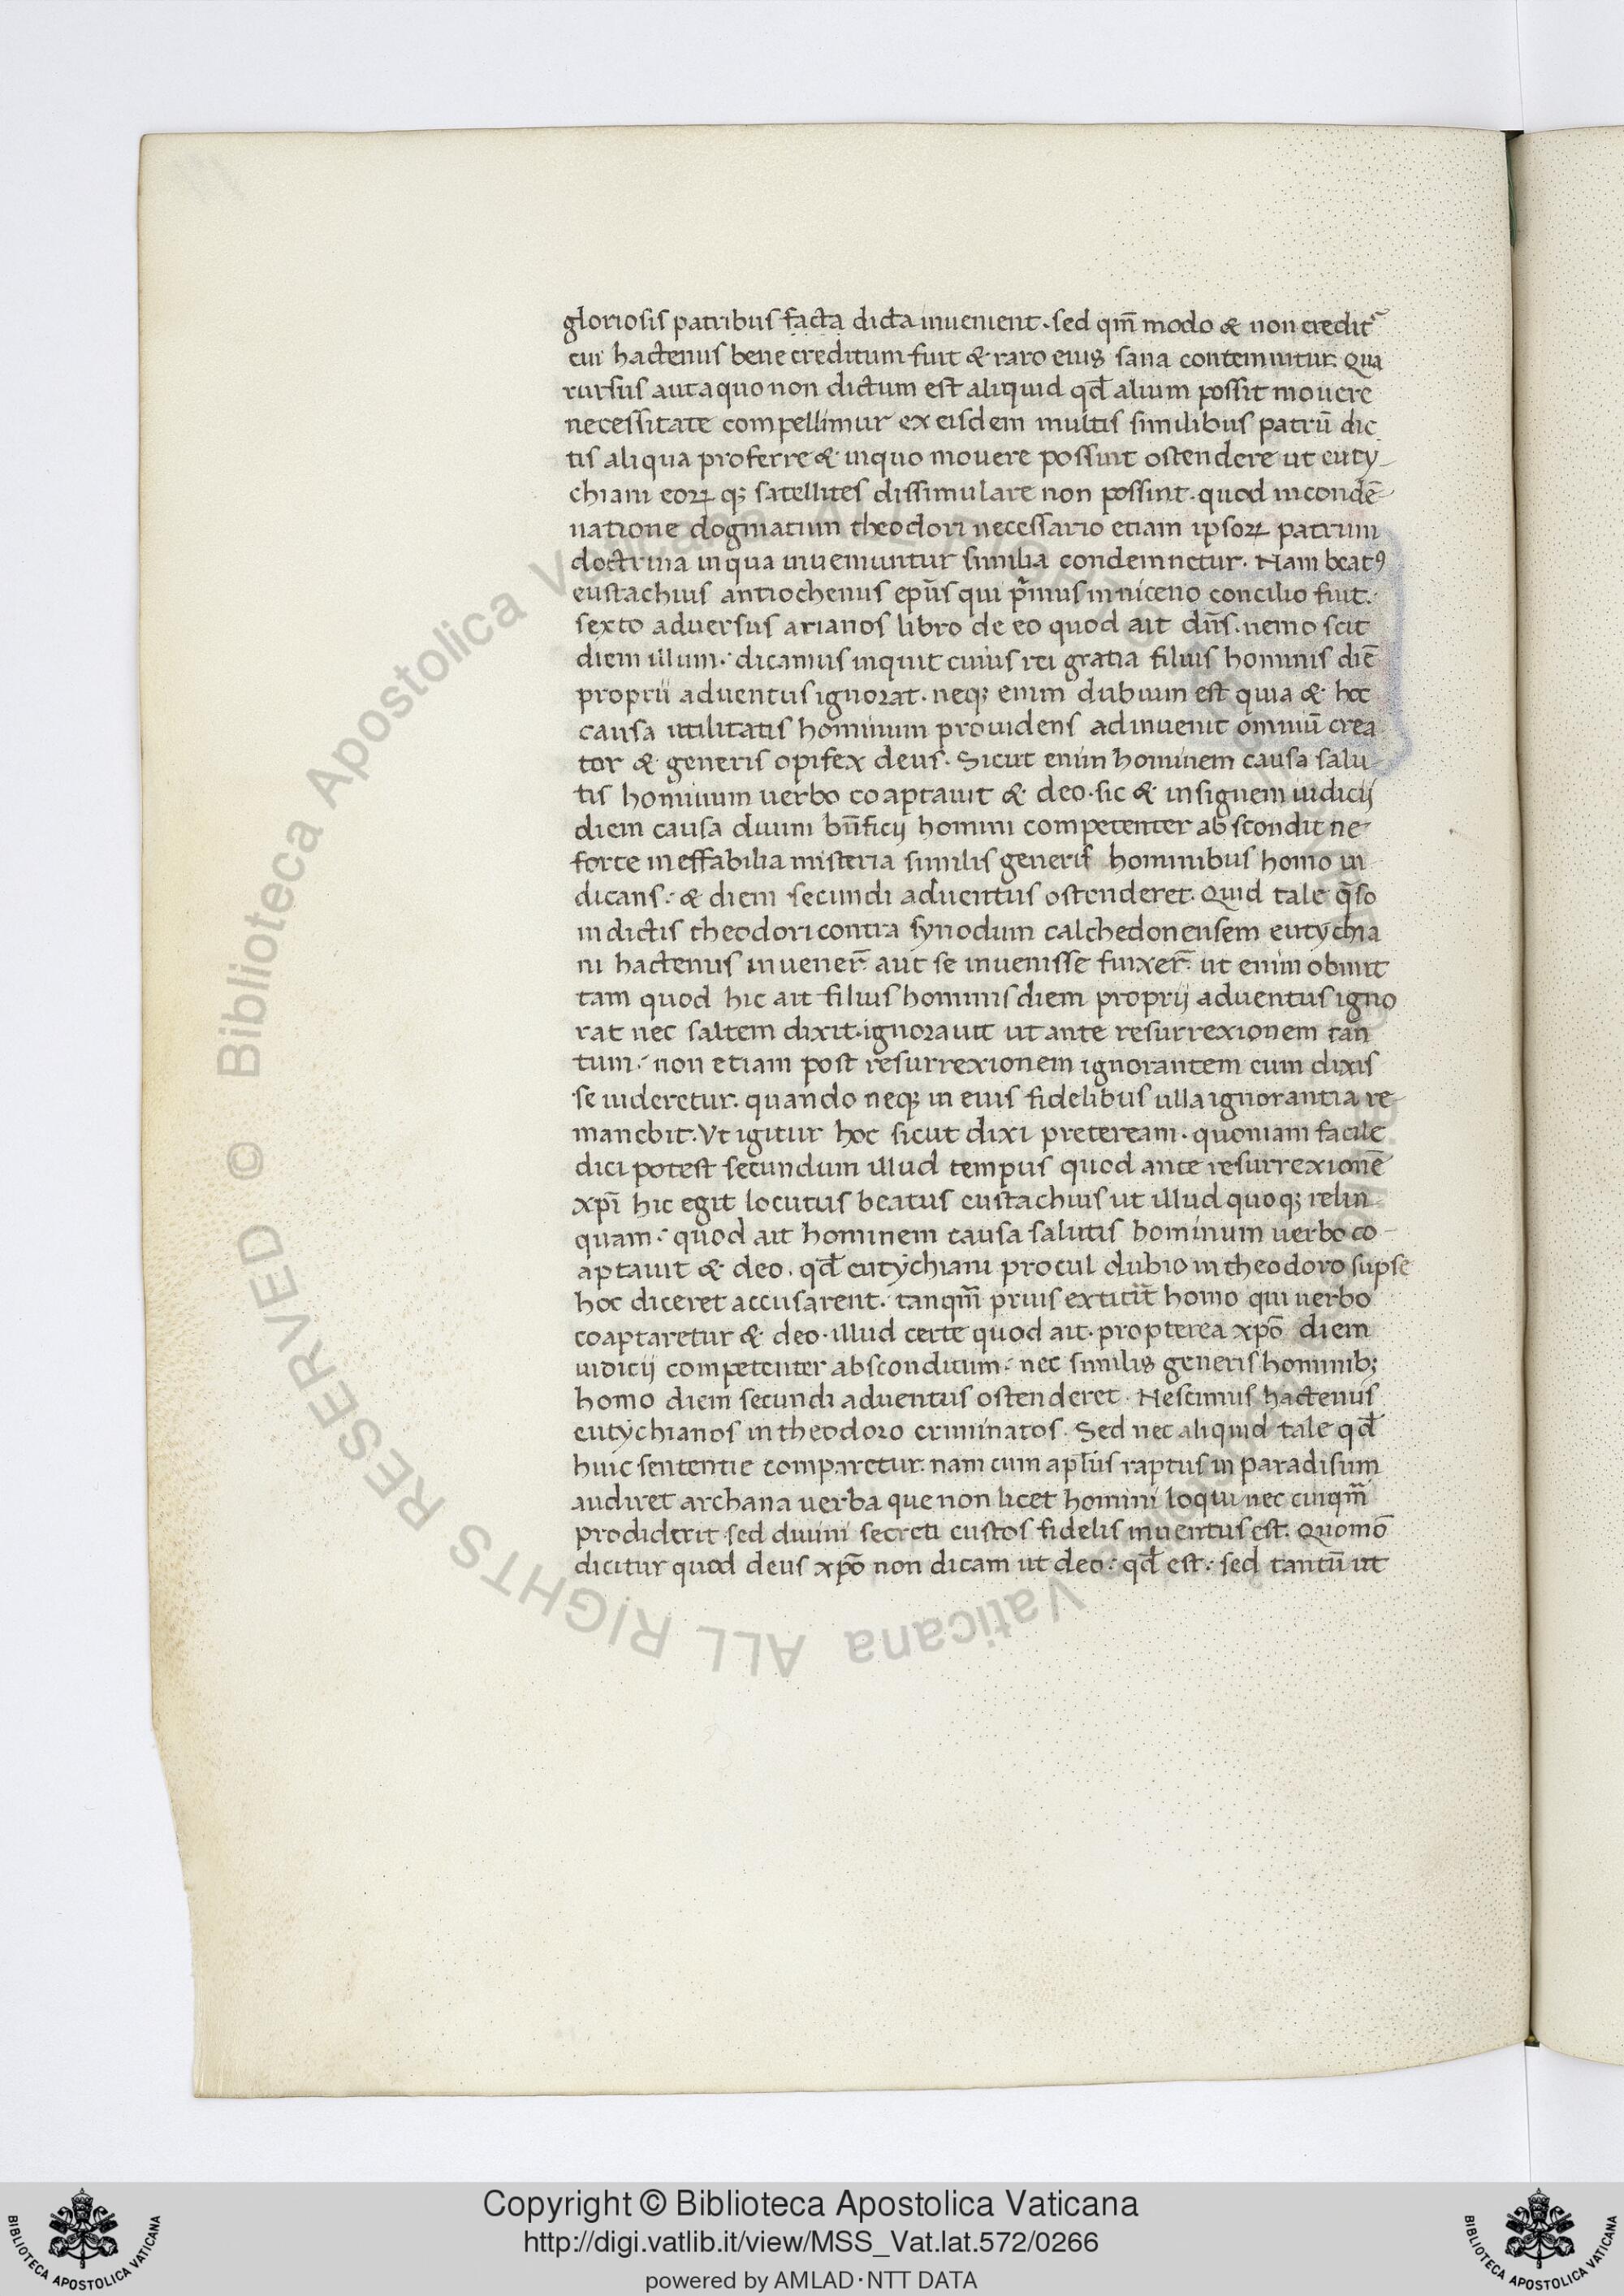 gloriosis patribus facta dicta inuenient. sed qm̄ modo & non credit᷑
cui hactenus bene creditum fuit & raro eius sana contemnitur. Qua
rursus aut a quo non dictum est aliquid qd̄ alium possit mouere
necessitate compellimur ex eisdem multis similibus patrū dic
tis aliqua proferre & in quo mouere possint ostendere ut euty-
chiani eoꝝ qꝫ satellites dissimulare non possint. quod in condē-
natione dogmatum theodori necessario etiam ipsoꝝ patrum
doctrina in qua inueniuntur similia condemnetur. Nam beatꝯ
eustachius antiochenus ep̄us qui p̄mus in niceno concilio fuit.
sexto aduersus arianos libro de eo quod ait dn̄s. nemo scit
diem illum. dicamus inquit cuius rei gratia filius hominis diē
proprii aduentus ignorat. neqꝫ enim dubium est quia & hoc
causa utilitatis hominum prouidens adinuenit omniū crea
tor & generis opifex deus. Sicut enim hominem causa salu-
tis hominum uerbo coaptauit & deo. sic & insignem iudicij
diem causa diuini bn̄ficij homini competenter abscondit ne-
forte ineffabilia misteria similis generis hominibus homo in
dicans. & diem secundi aduentus ostenderet. Quid tale q̄so
in dictis theodori contra synodum calchedonensem eutychia
ni hactenus inuener̄. aut se inuenisse finxer̄. ut enim obmit
tam quod hic ait filius hominis diem proprij aduentus igno
rat nec saltem dixit. ignorauit ut ante resurrexionem tan
tum. non etiam post resurrexionem ignorantem cum dixis
se uideretur. quando neqꝫ in eius fidelibus ulla ignorantia re-
manebit. Vt igitur hoc sicut dixi preteream. quoniam facile
dici potest secundum illud tempus quod ante resurrexionē
xp̄i hic egit locutus beatus eustachius ut illud quoqꝫ relin
quam. quod ait hominem causa salutis hominum uerbo co-
aptauit & deo. qd̄ eutychiani procul dubio in theodoro si ipse
hoc diceret accusarent. tanqm̄ prius extitit̄ homo qui uerbo
coaptaretur & deo. illud certe quod ait. propterea xp̄o diem
iudicij competenter absconditum. nec similis generis hominibꝫ
homo diem secundi aduentus ostenderet. Nescimus hactenus
eutychianos in theodoro criminatos. Sed nec aliquid tale qd̄
huic sententie comparetur. nam cum apl̄us raptus in paradisum
audiret archana uerba que non licet homini loqui nec cuiqm̄
prodiderit sed diuini secreti custos fidelis inuentus est. Quomō
dicitur quod deus xp̄o non dicam ut deo. qd̄ est. sed tantū ut
© Biblioteca Apostolica Vaticana ALL RIGHTS RESERVED
Copyright © Biblioteca Apostolica Vaticana
http://digi.vatlib.it/view/MSS_Vat.lat.572/0266
powered by AMLAD·NTT DATA
BIBLIOTECA APOSTOLICA VATICANA
BIBLIOTECA APOSTOLICA VATICANA